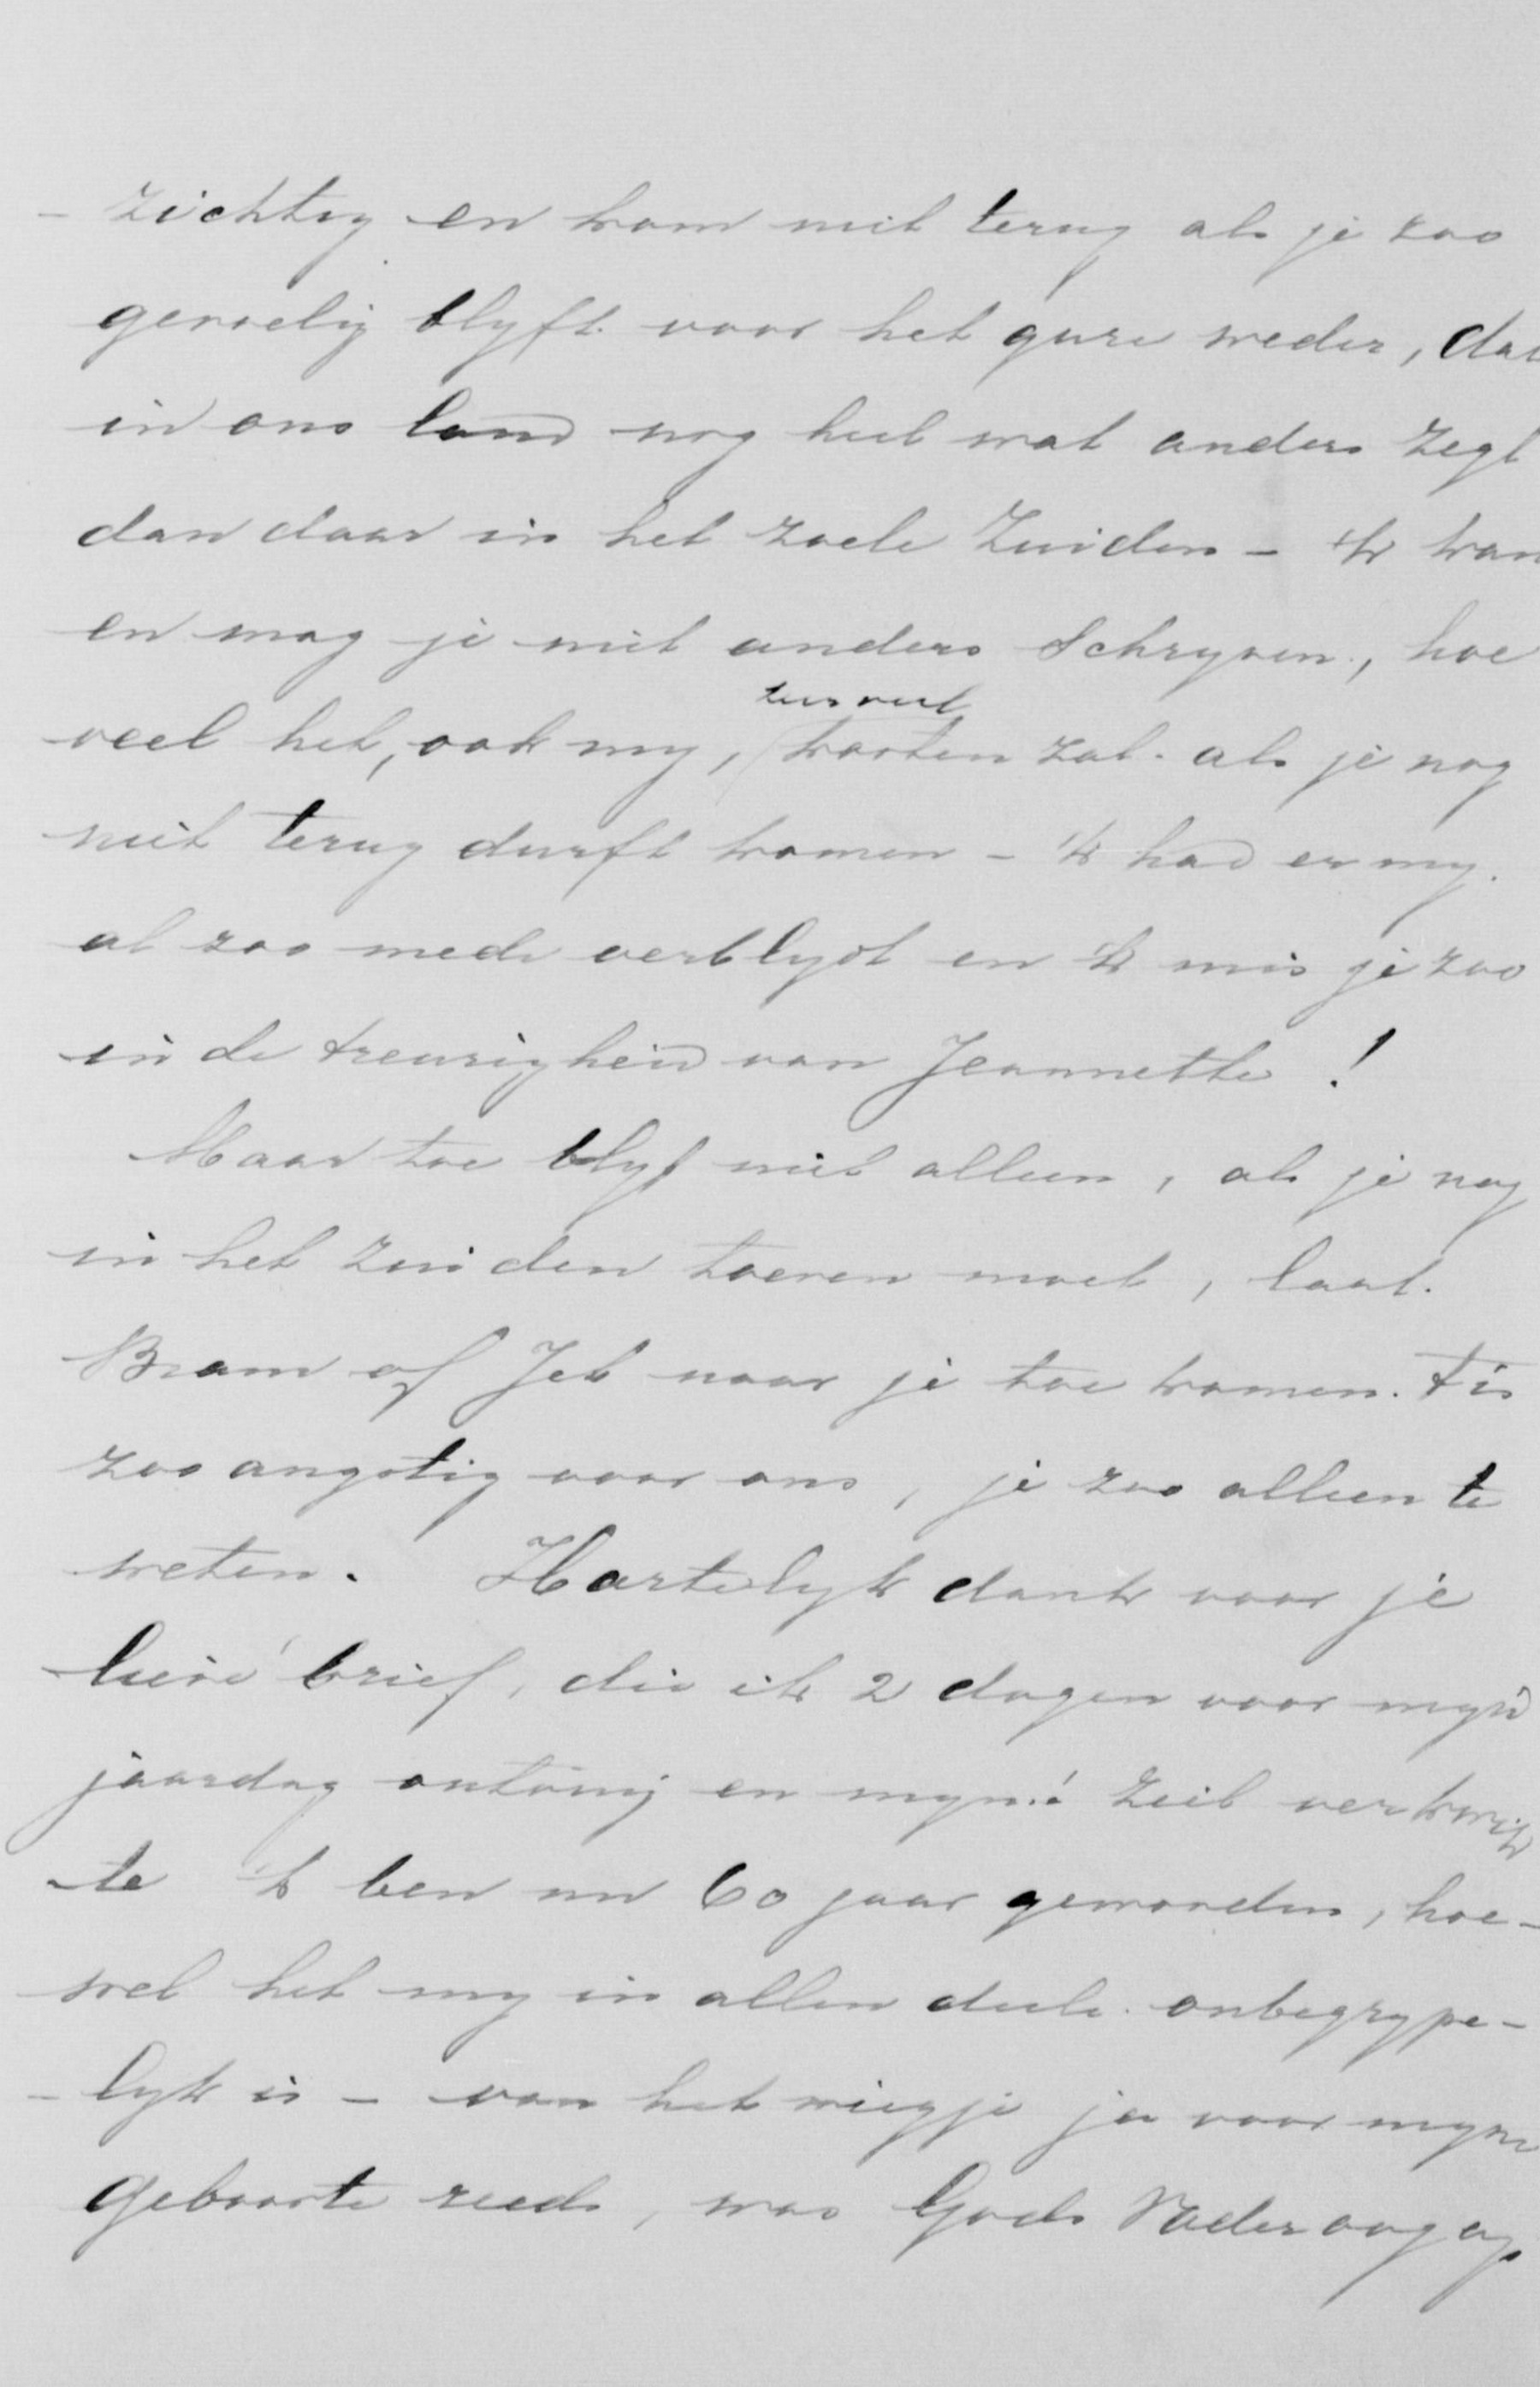 - zichtig en kom niet terug als je zoo
gevoelig blyft voor het gure weder, dat
in ons land nog heel wat anders zegt
dan daar in het zoele Zuiden - 'k kan
en mag je niet anders schryven, hoe
teer veel
veel het, ook my, kosten zal. als je nog
niet terug durft komen - 'k had er my
al zoo mede verblyd en 'k mis je zoo
in de treurigheid van Jeannette!
Maar toe blyf niet alleen, als je nog
in het zuiden toeven moet, laat
Bram of Jet naar je toe komen. t is
zoo angstig voor ons, je zoo alleen te
weten. Hartelyk dank voor je
lieve brief, die ik 2 dagen voor myn
jaardag ontving en myne ziel verkwik
-te 'k ben nu 60 jaar geworden, hoe-
wel het my in allen deele onbegrype-
- lyk is - van het wiegje ja voor myne
geboorte reeds, was Gods Vaderoog op